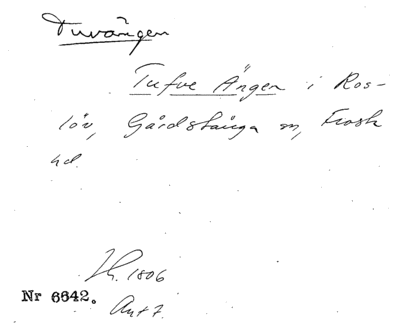 Tuvängen
Tufve Ängen i Ros-
löv, Gårdstånga sn, Frosta
hd.
1806
Nr 6642.
Akt 7.